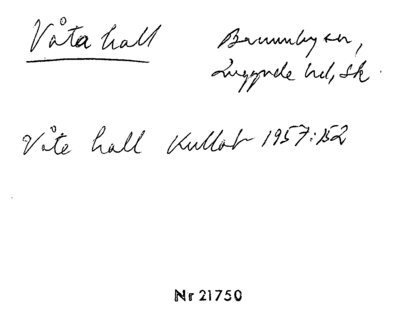 Våta hall
Brunnby sn,
Luggude hd, Sk.
Våte hall Kullab 1957:152
Nr 21750